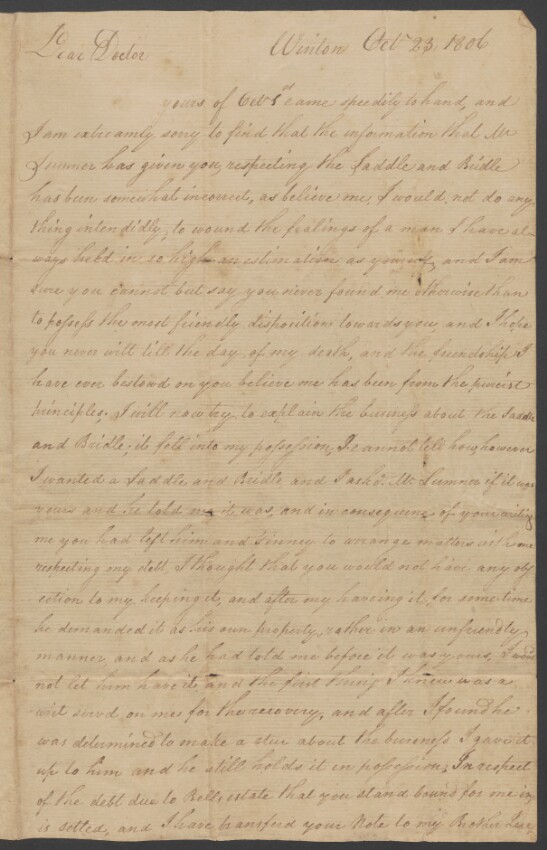 Dear Doctor Winton Octr 23, 1806
yours of Octr 1st came speedily to hand, and
I am extreamly sorry to find that the information that Mr
Sumner has given you respecting the Saddle and Bridle
has been somewhat incorrect, as believe me, I would not do any
thing intendidly, to wound the fealings of a man I have al-
ways held in so high an estimation as yourself, and I am
sure you cannot but say you never found me otherwise than
to possess the most friendly disposition towards you, and I hope
you never will till the day of my death, and the friendship I
have ever bestowd on you believe me has been from the pureist
principles; I will now try to explain the buisness about the Saddle
and Bridle, it fell into my possession, I cannot tell how, however
I wanted a Saddle and Bridle and I askd. Mr Sumner if it was
yours and he told me it was, and in consequence of your writing
me you had left him and to arrange matters with me
respecting my debt, I thought that you would not have any obj
ection to my keeping it, and after my haveing it for some time
he demanded it as his own property, rather in an unfriendly
manner, and as he had told me before it was yours, I would
not let him have it, and the first thing I knew was a
writ servd on me for the recovery, and after I found he
was determined to make a stur about the buisness I gave it
up to him and he still holds it in possession; In respect
of the debt due to Bells estate that you stand bound for me in
is settled, and I have transferd your Note to my Brother